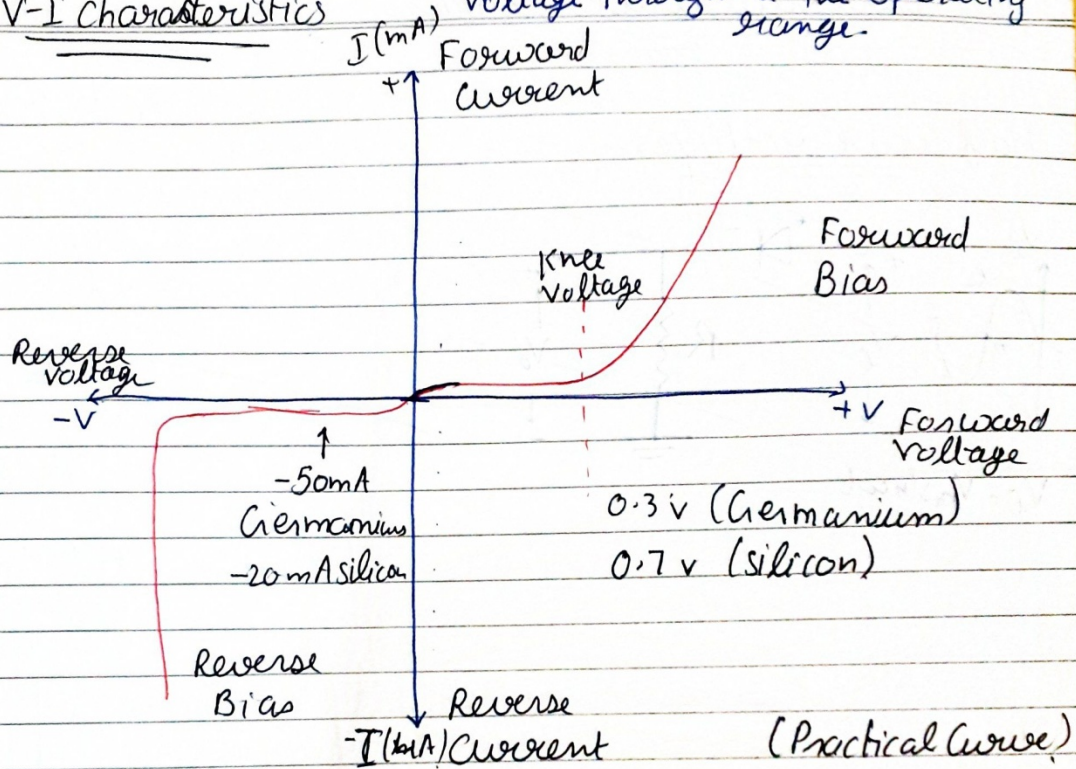 V-I Characteristics
range.
I(mA)
+
Forward
Current
Knee
Voltage
Forward
Bias
Reverse
voltage
-V
+V
Forward
Voltage
-50mA
Germanium
-20mA silicon
0.3 v (Germanium)
0.7 v (silicon)
Reverse
Bias
Reverse
Current
(Practical Curve)